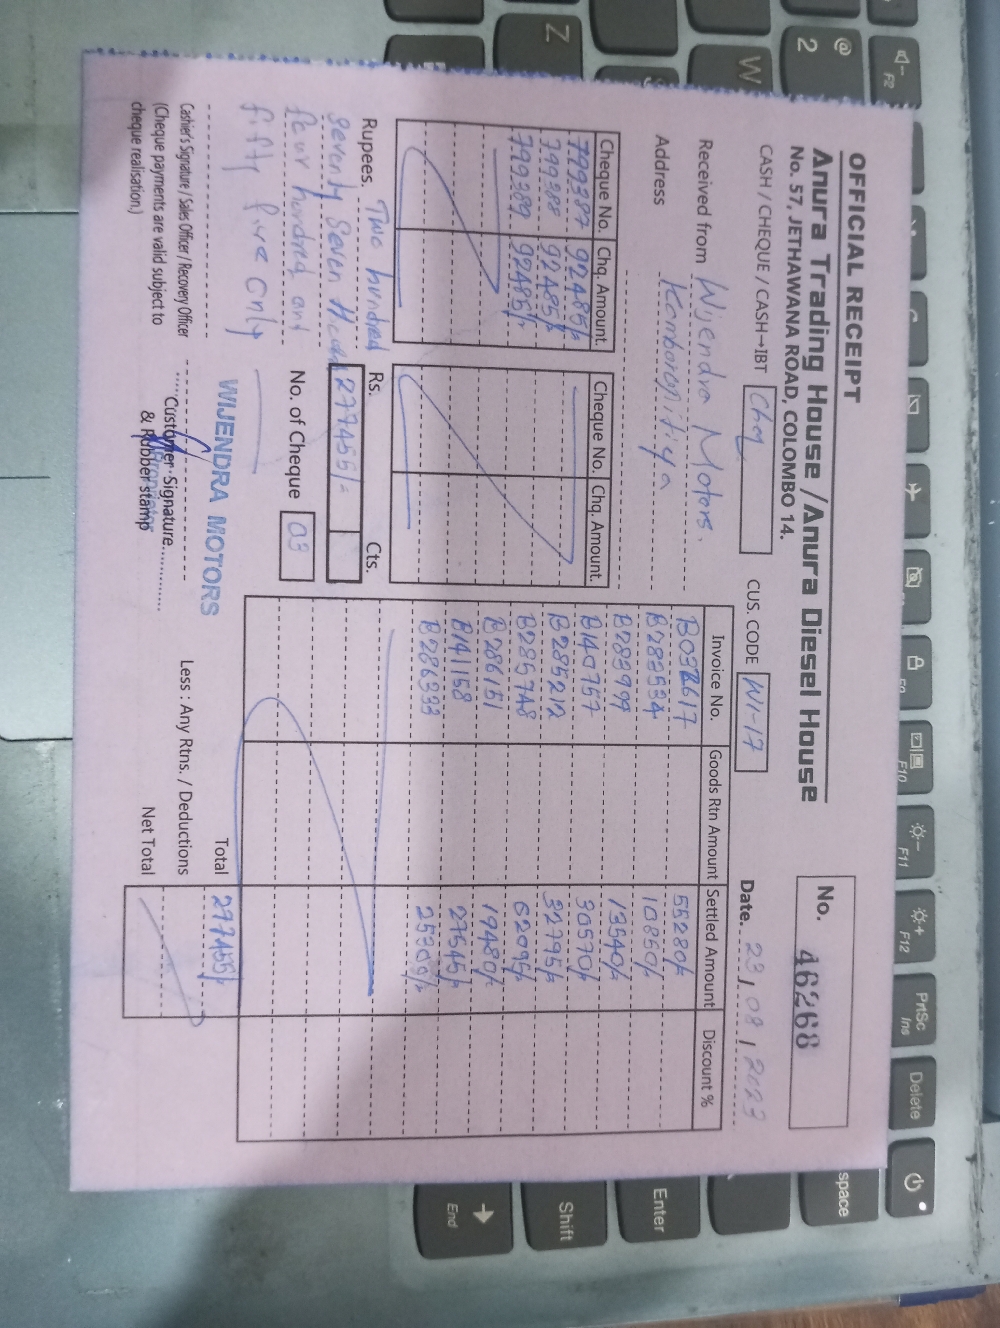 OFFICIAL RECEIPT
Anura Trading House / Anura Diesel House
No. 57, JETHAWANA ROAD, COLOMBO 14.
No. 46268
CASH / CHEQUE / CASH→IBT Chq
CUS. CODE WI-17
Date. 23 / 08 / 2023
Received from Wijendra Motors.
Address
Cheque No. Chq. Amount. Cheque No. Chq. Amount.
799387 92485/=
799388 92485/=
799389 92485/=
Invoice No. Goods Rtn Amount Settled Amount Discount %
B032617 55280/=
B282534 10850/=
B283999 13540/=
B140757 30570/=
B285212 32795/=
B285748 62095/=
B286151 19480/=
B141158 27545/=
B286333 25300/=
Rupees. Two hundred
Seventy Seven
four hundred and
fifty five only
Rs. 277455/= Cts.
No. of Cheque 03
WIJENDRA MOTORS
Total 277455/=
Less : Any Rtns. / Deductions
Net Total
Cashier's Signature / Sales Officer / Recovery Officer
(Cheque payments are valid subject to
cheque realisation.)
Customer Signature
& Rubber stamp
F2
@
2
W
Z
F10
F11
F12
PrtSc
Ins
Delete
space
Enter
Shift
End